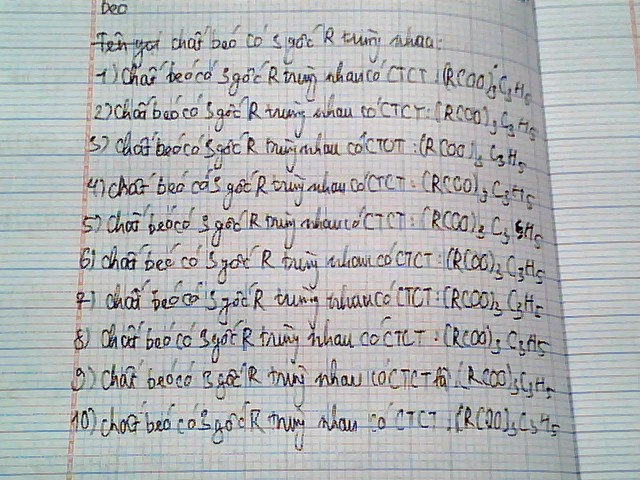 béo
Tên gọi chất béo có 3 gốc R trùng nhau:
1) Chất béo có 3 gốc R trùng nhau có CTCT : (RCOO)3C3H5
2) Chất béo có 3 gốc R trùng nhau có CTCT : (RCOO)3C3H5
3) Chất béo có 3 gốc R trùng nhau có CTCT : (RCOO)3C3H5
4) Chất béo có 3 gốc R trùng nhau có CTCT : (RCOO)3C3H5
5) Chất béo có 3 gốc R trùng nhau có CTCT : (RCOO)3C3H5
6) Chất béo có 3 gốc R trùng nhau có CTCT : (RCOO)3C3H5
7) Chất béo có 3 gốc R trùng nhau có CTCT : (RCOO)3C3H5
8) Chất béo có 3 gốc R trùng nhau có CTCT : (RCOO)3C3H5
9) Chất béo có 3 gốc R trùng nhau có CTCT : (RCOO)3C3H5
10) Chất béo có 3 gốc R trùng nhau có CTCT : (RCOO)3C3H5